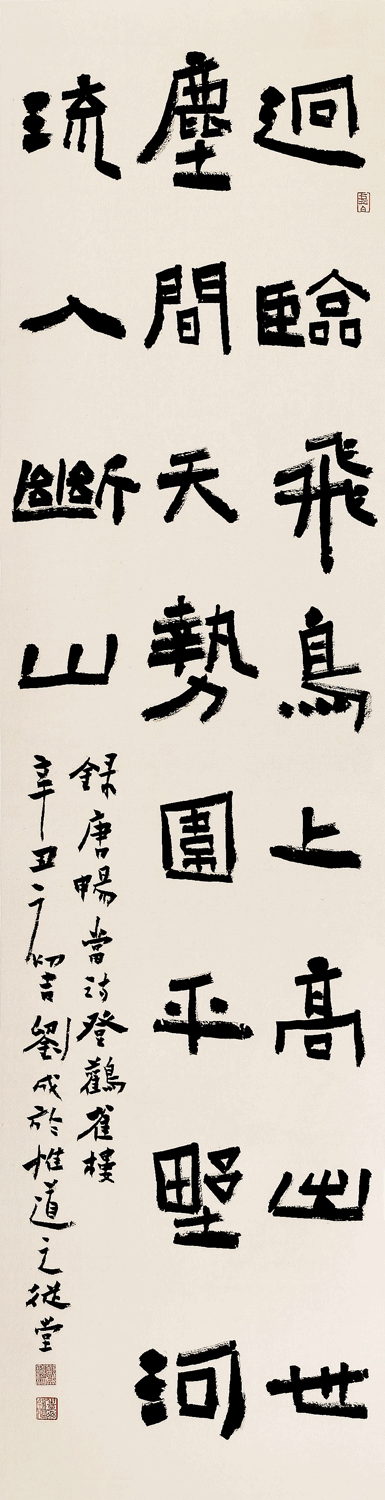 迥臨飛鳥上高出世
塵間天勢圍平野河
流入斷山
録唐暢當詩登鸛雀樓
辛丑初吉劉成於惟道之從堂